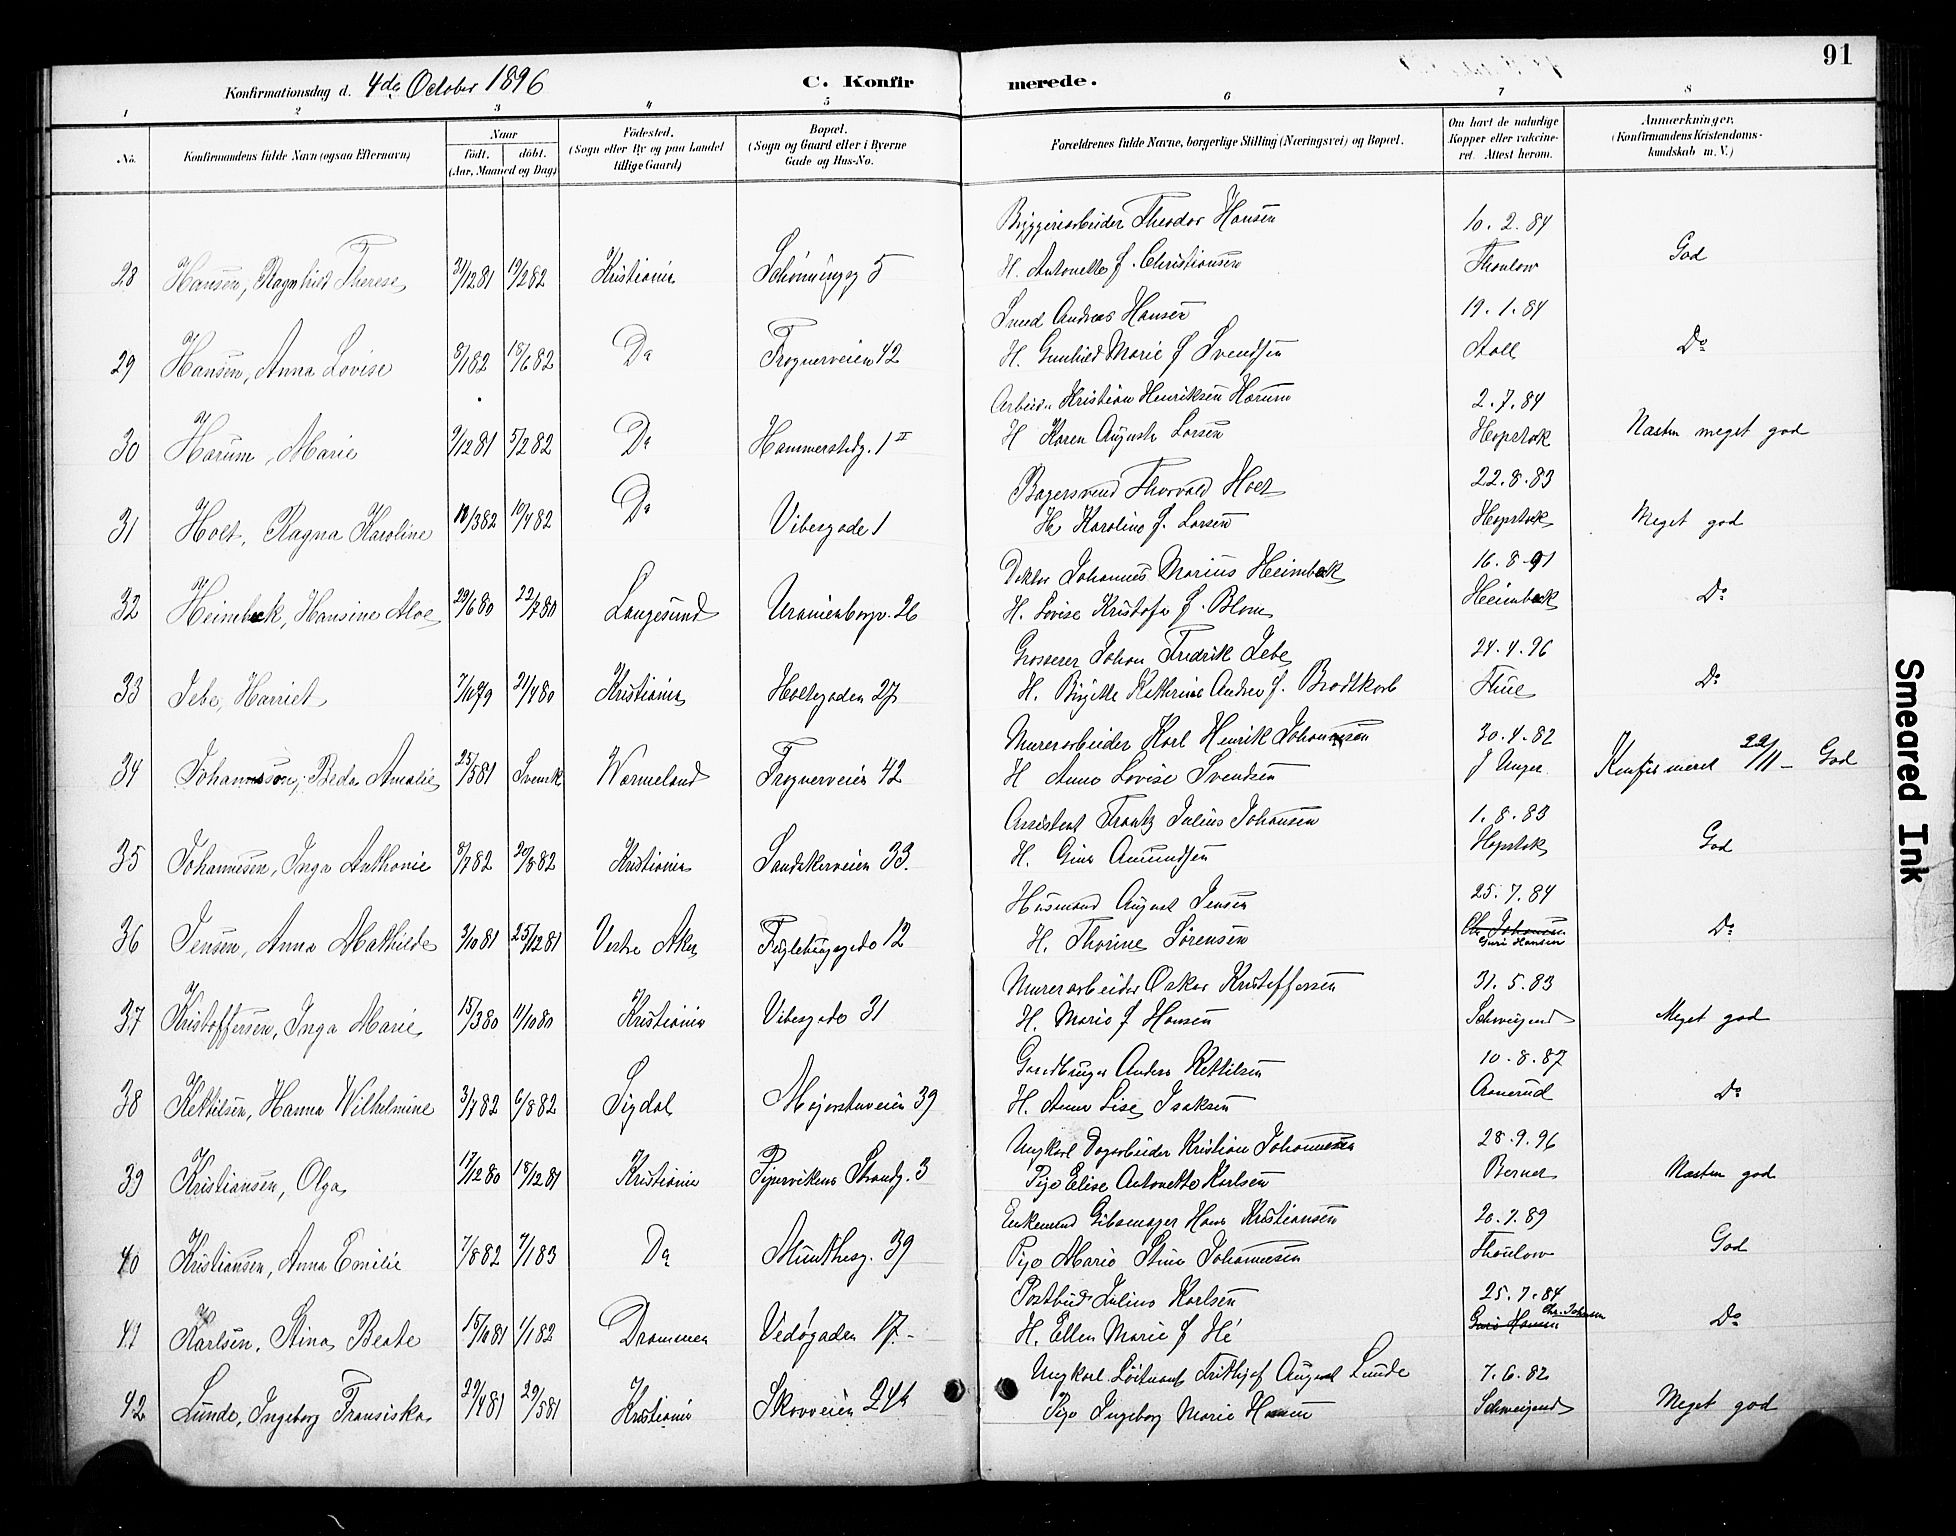 91
Konfirmationsdag d. 4de October 1896 C. Konfirmerede.
1 2 3 4 5 6 7 8
No. Konfirmandens fulde Navn (ogsaa Efternavn) Naar født. døbt. (Aar, Maaned og Dag) Fødested. (Sogn eller By og paa Landet tillige Gaard) Bopæl. (Sogn og Gaard eller i Byerne Gade og Hus-No. Forældrenes fulde Navne, borgerlige Stilling (Næringsvei) og Bopæl. Om havt de naturlige Kopper eller vakcineret. Attest herom. Anmærkninger. (Konfirmandens Kristendomskundskab m. V.)
Bryggeriarbeider Theodor Hansen 10.2.84
28 Hansen, Ragnhild Therese 31/12 81 19/2 82 Kristiania Schönningsg 5 H. Antonette f. Christiansen Thaulow God
Smed Andreas Hansen 19.1.84
29 Hansen, Anna Lovise 8/1 82 18/6 82 Do Frognerveien 42 H. Gunhild Marie f Svendsen Aall Do
Arbeider Kristian Henriksen Harum 2.7.84
30 Harum, Marie 9/12 81 5/2 82 Do Hammerstadg. 1 II H Karen Auguste Larsen Hopstock Næsten meget god
Bagersvend Thorvald Holt 22.8.83
31 Holt, Ragna Karoline 10/3 82 10/4 82 Do Vibesgade 1 H. Karoline f. Larsen Hopstock Meget god
Doktor Johannes Marius Heimbeck 16.8.91
32 Heimbeck, Hansine Aloe 29/6 80 22/7 80 Langesund Uranienborgv. 26 H. Lovise Kristofa f. Blom Heimbeck Do
Grosserer Johan Fredrik Jebe 24.4.96
33 Jebe, Harriet 7/11 79 21/4 80 Kristiania Holtegaden 27 H. Birgitte Katherine Andrea f. Brodtkorb Thue Do
Murerarbeider Karl Henrik Johannesen 30.4.82
34 Johannsson, Beda Amalie 25/5 81 Svensk Warmeland Frognerveien 42 H Anna Lovise Svendsen J Unger Konfirmeret 22/11 – God
Assistent Frantz Julius Johansen 1.8.83
35 Johannesen, Inga Anthonie 8/7 82 20/8 82 Kristiania Sandakerveien 33. H. Gina Amundsen Hopstock God
Husmand August Jensen 25.7.84
36 Jensen, Anna Mathilde 3/10 81 25/12 81 Vestre Aker Fuglehauggade 12 H. Thorine Sørensen Chr. Johansen Guri Hansen Do
Murerarbeider Oskar Kristoffersen 31.5.83
37 Kristoffersen, Inga Marie 15/3 80 11/10 80 Kristiania Vibesgade 31 H. Marie f Hansen Schweigaard Meget god
Gaardbruger Anders Kettilsen 10.8.87
38 Kettilsen, Hanna Wilhelmine 3/7 82 6/8 82 Sigdal Majorstuveien 39 H. Anne Lise Isaksen Aamerud Do
Ungkarl Dagarbeider Kristian Johannesen 28.9.96
39 Kristiansen, Olga 17/12 80 18/12 81 Kristiania Pipervikens Strandg. 3 Pige Elise Antonette Karlsen Berner Næsten god
Enkemand Gibsmager Hans Kristiansen 20.7.89
40 Kristiansen, Anna Emilie 7/8 82 7/1 83 Do Munthesg. 39 Pige Marie Stine Johannesen Thaulow God
Postbud Julius Karlsen 25.7.84
41 Karlsen, Stina Beate 15/10 81 1/1 82 Drammen Vedøgaden 17.- H. Ellen Marie f Hé Guri Hansen Chr. Johansen Do
Ungkarl Løitnant Fridtjof August Lunde 7.6.82
42 Lunde, Ingeborg Fransiska 27/4 81 29/5 81 Kristiania Skovveien 24b Pige Ingeborg Marie Hansen Schweigaard Meget god
Smeared Ink